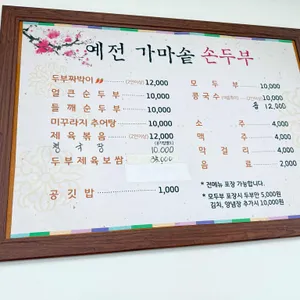 예전 가마솥 손두부
두부짜박이 (2인이상) 12,000
얼큰순두부 10,000
들깨순두부 10,000
미꾸라지 추어탕 10,000
제육볶음 (2인이상) 12,000
청국장 10,000
두부제육보쌈 38,000
공깃밥 1,000
모두부 10,000
콩국수 10,000
12,000
소주 4,000
맥주 4,000
막걸리 4,000
음료 2,000
* 전메뉴 포장 가능합니다.
* 모두부 포장시 두부만 5,000원
김치, 양념장 추가시 10,000원